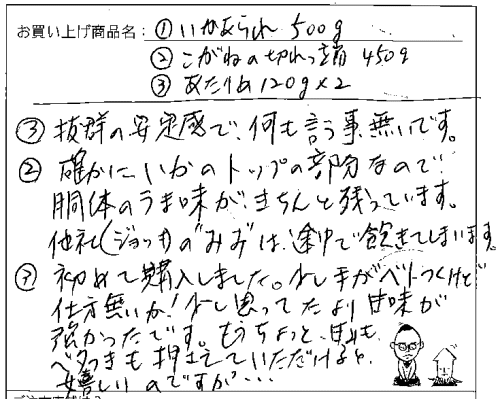 お買い上げ商品名：①いかあられ 500g
②こがねの切れっ端 450g
③あたりめ120g×2
③ 抜群の安定感で、何も言う事無いです。
② 確かにいかのトップの部分なので
胴体のうま味がきちんと残っています。
他社(ジョッキ)の"みみ"は途中で飽きてしまいます。
⑦ 初めて購入しました。少し手がベトつくけど
仕方無いか！少し思ってたより甘味が
強かったです。もうちょっと、甘みも
ベタつきも押さえていただけると、
嬉しいのですが…